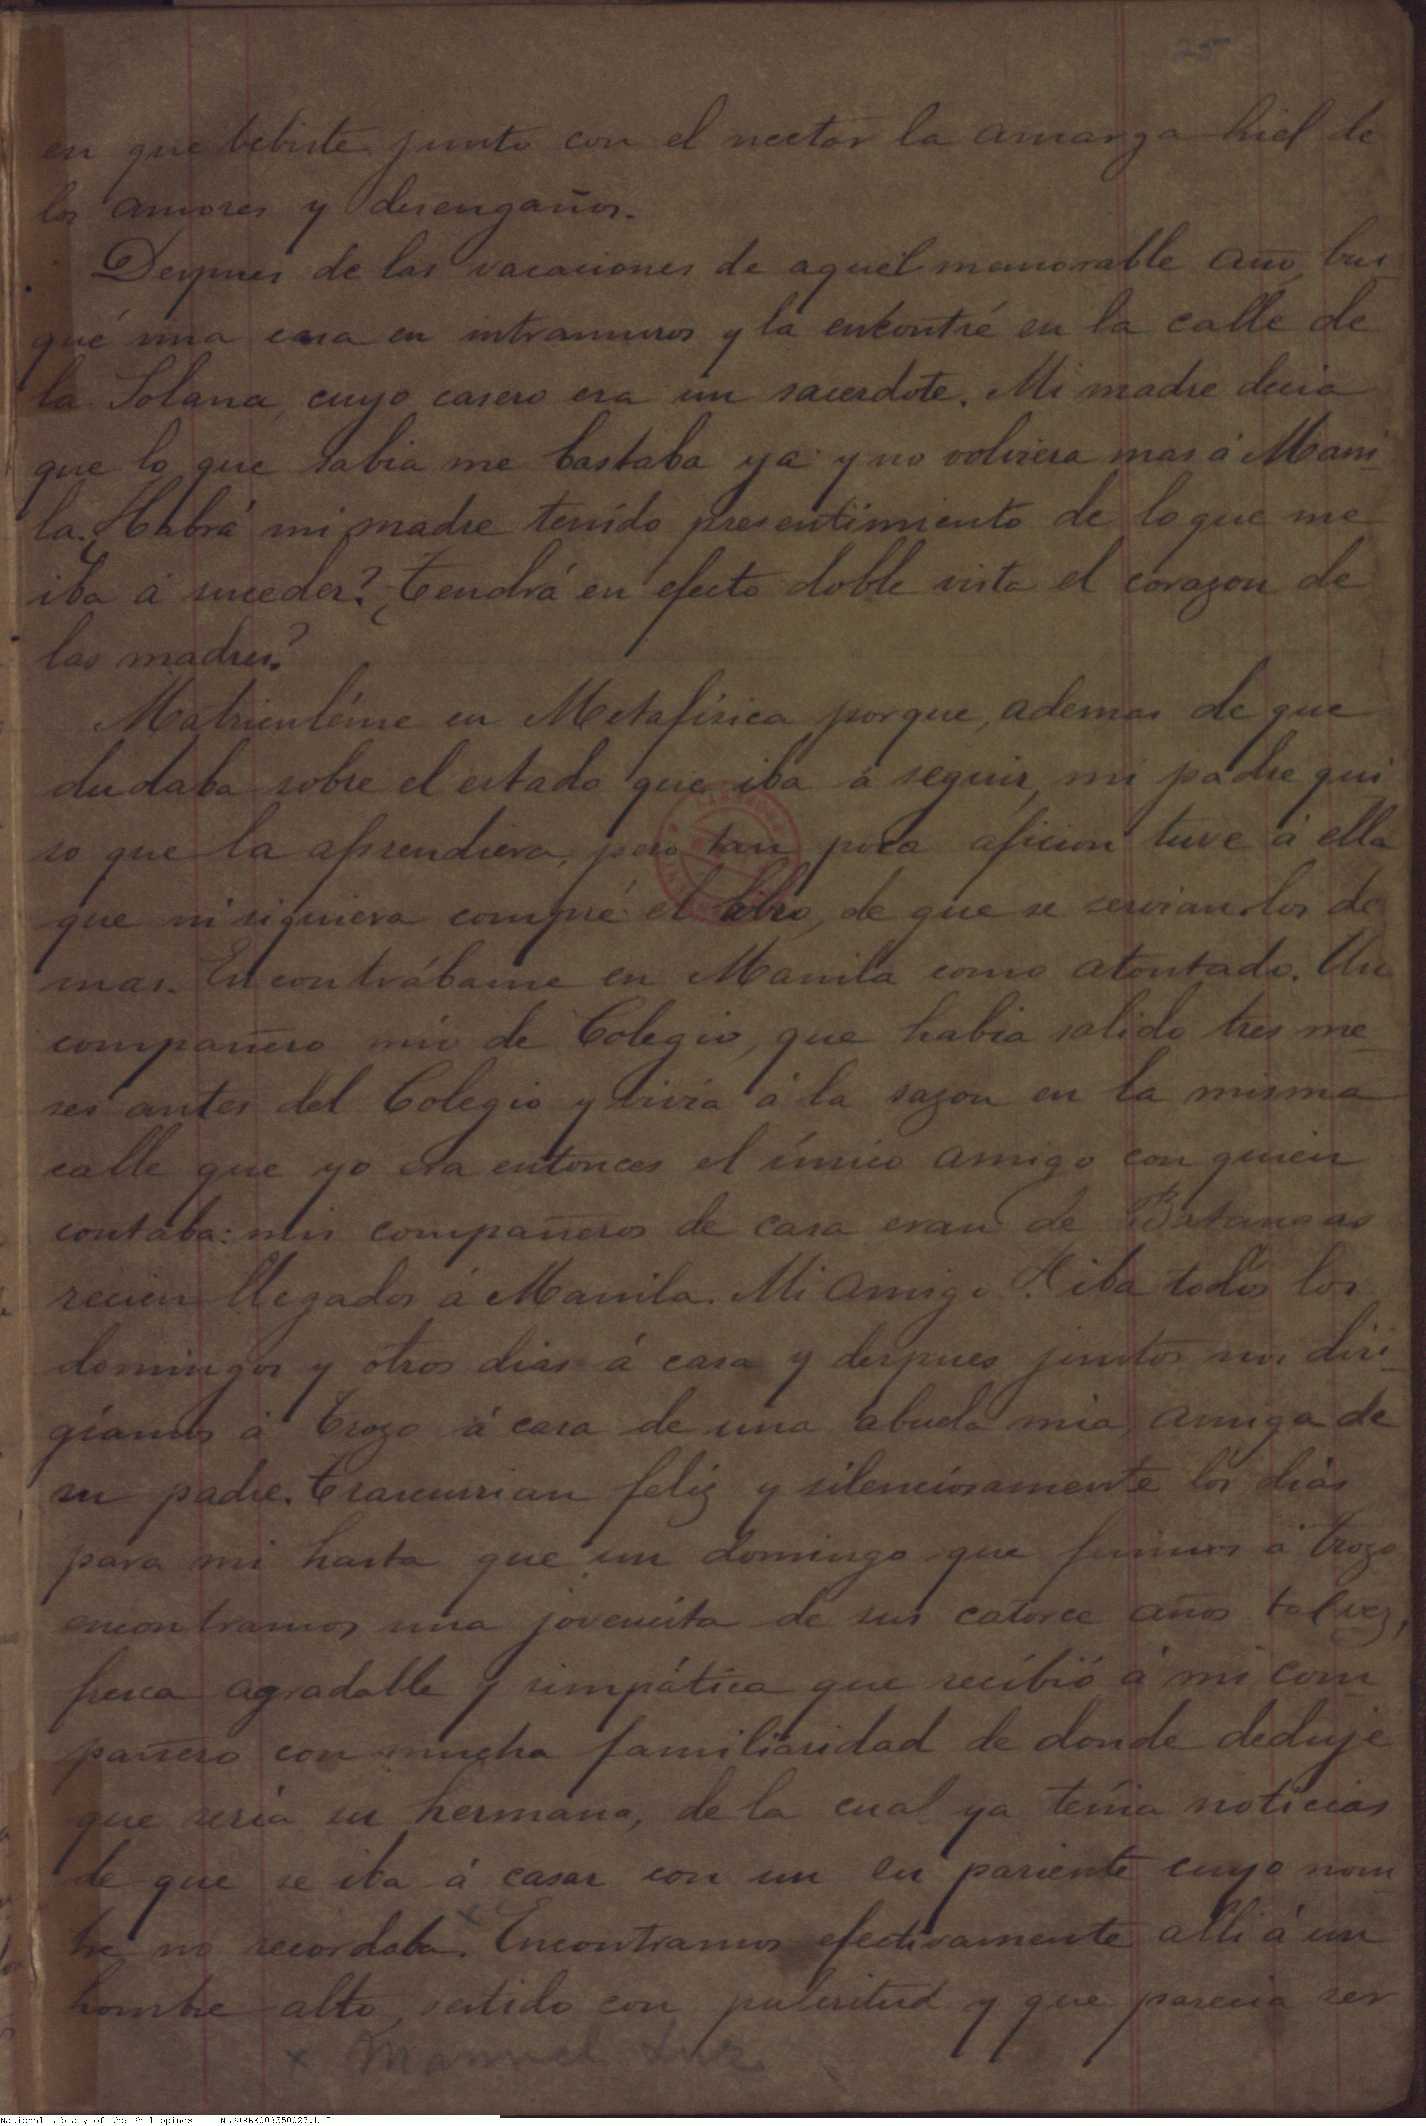 25
en que bebiste junto con el nectar la amarga hiel de
los amores y desengaños.
Despues de las vacaciones de aquel memorable año, bus-
qué una casa en intramuros y la encontré en la calle de
la Solana, cuyo casero era un sacerdote. Mi madre decia
que lo que sabia me bastaba ya y no volviera mas á Mani-
la. ¿Habrá mi madre tenido presentimiento de lo que me
iba á suceder? ¿Tendrá en efecto doble vista el corazon de
las madres?
Matriculéme en Metafísica porque, ademas de que
dudaba sobre el estado que iba á seguir, mi padre qui
so que la aprendiera, pero tan poca aficion tuve á ella
que ni siquiera compré el libro, de que se servian los de
mas. Encontrábame en Manila como atontado. Un
compañero mio de Colegio, que habia salido tres me
ses antes del Colegio y vivia á la sazon en la misma
calle que yo era entonces el único amigo con quien
contaba: mis compañeros de casa eran de Batangas
recien llegados á Manila. Mi amigo iba todos los
domingos y otros dias á casa y despues juntos nos diri-
giamos á Trozo á casa de una abuela mia, amiga de
su padre. Trascurrian feliz y silenciosamente los dias
para mi hasta que un domingo que fuimos á Trozo
encontramos una jovencita de sus catorce años tal vez,
fresca agradable y simpática que recibió á mi com
pañero con mucha familiaridad de donde deduje
que seria su hermana, de la cual ya tenia noticias
de que se iba á casar con un su pariente cuyo nom
bre no recordaba. x Encontramos efectivamente alli á un
hombre alto, vestido con pulcritud y que parecia ser
x Manuel Luz.
National Library of the Philippines